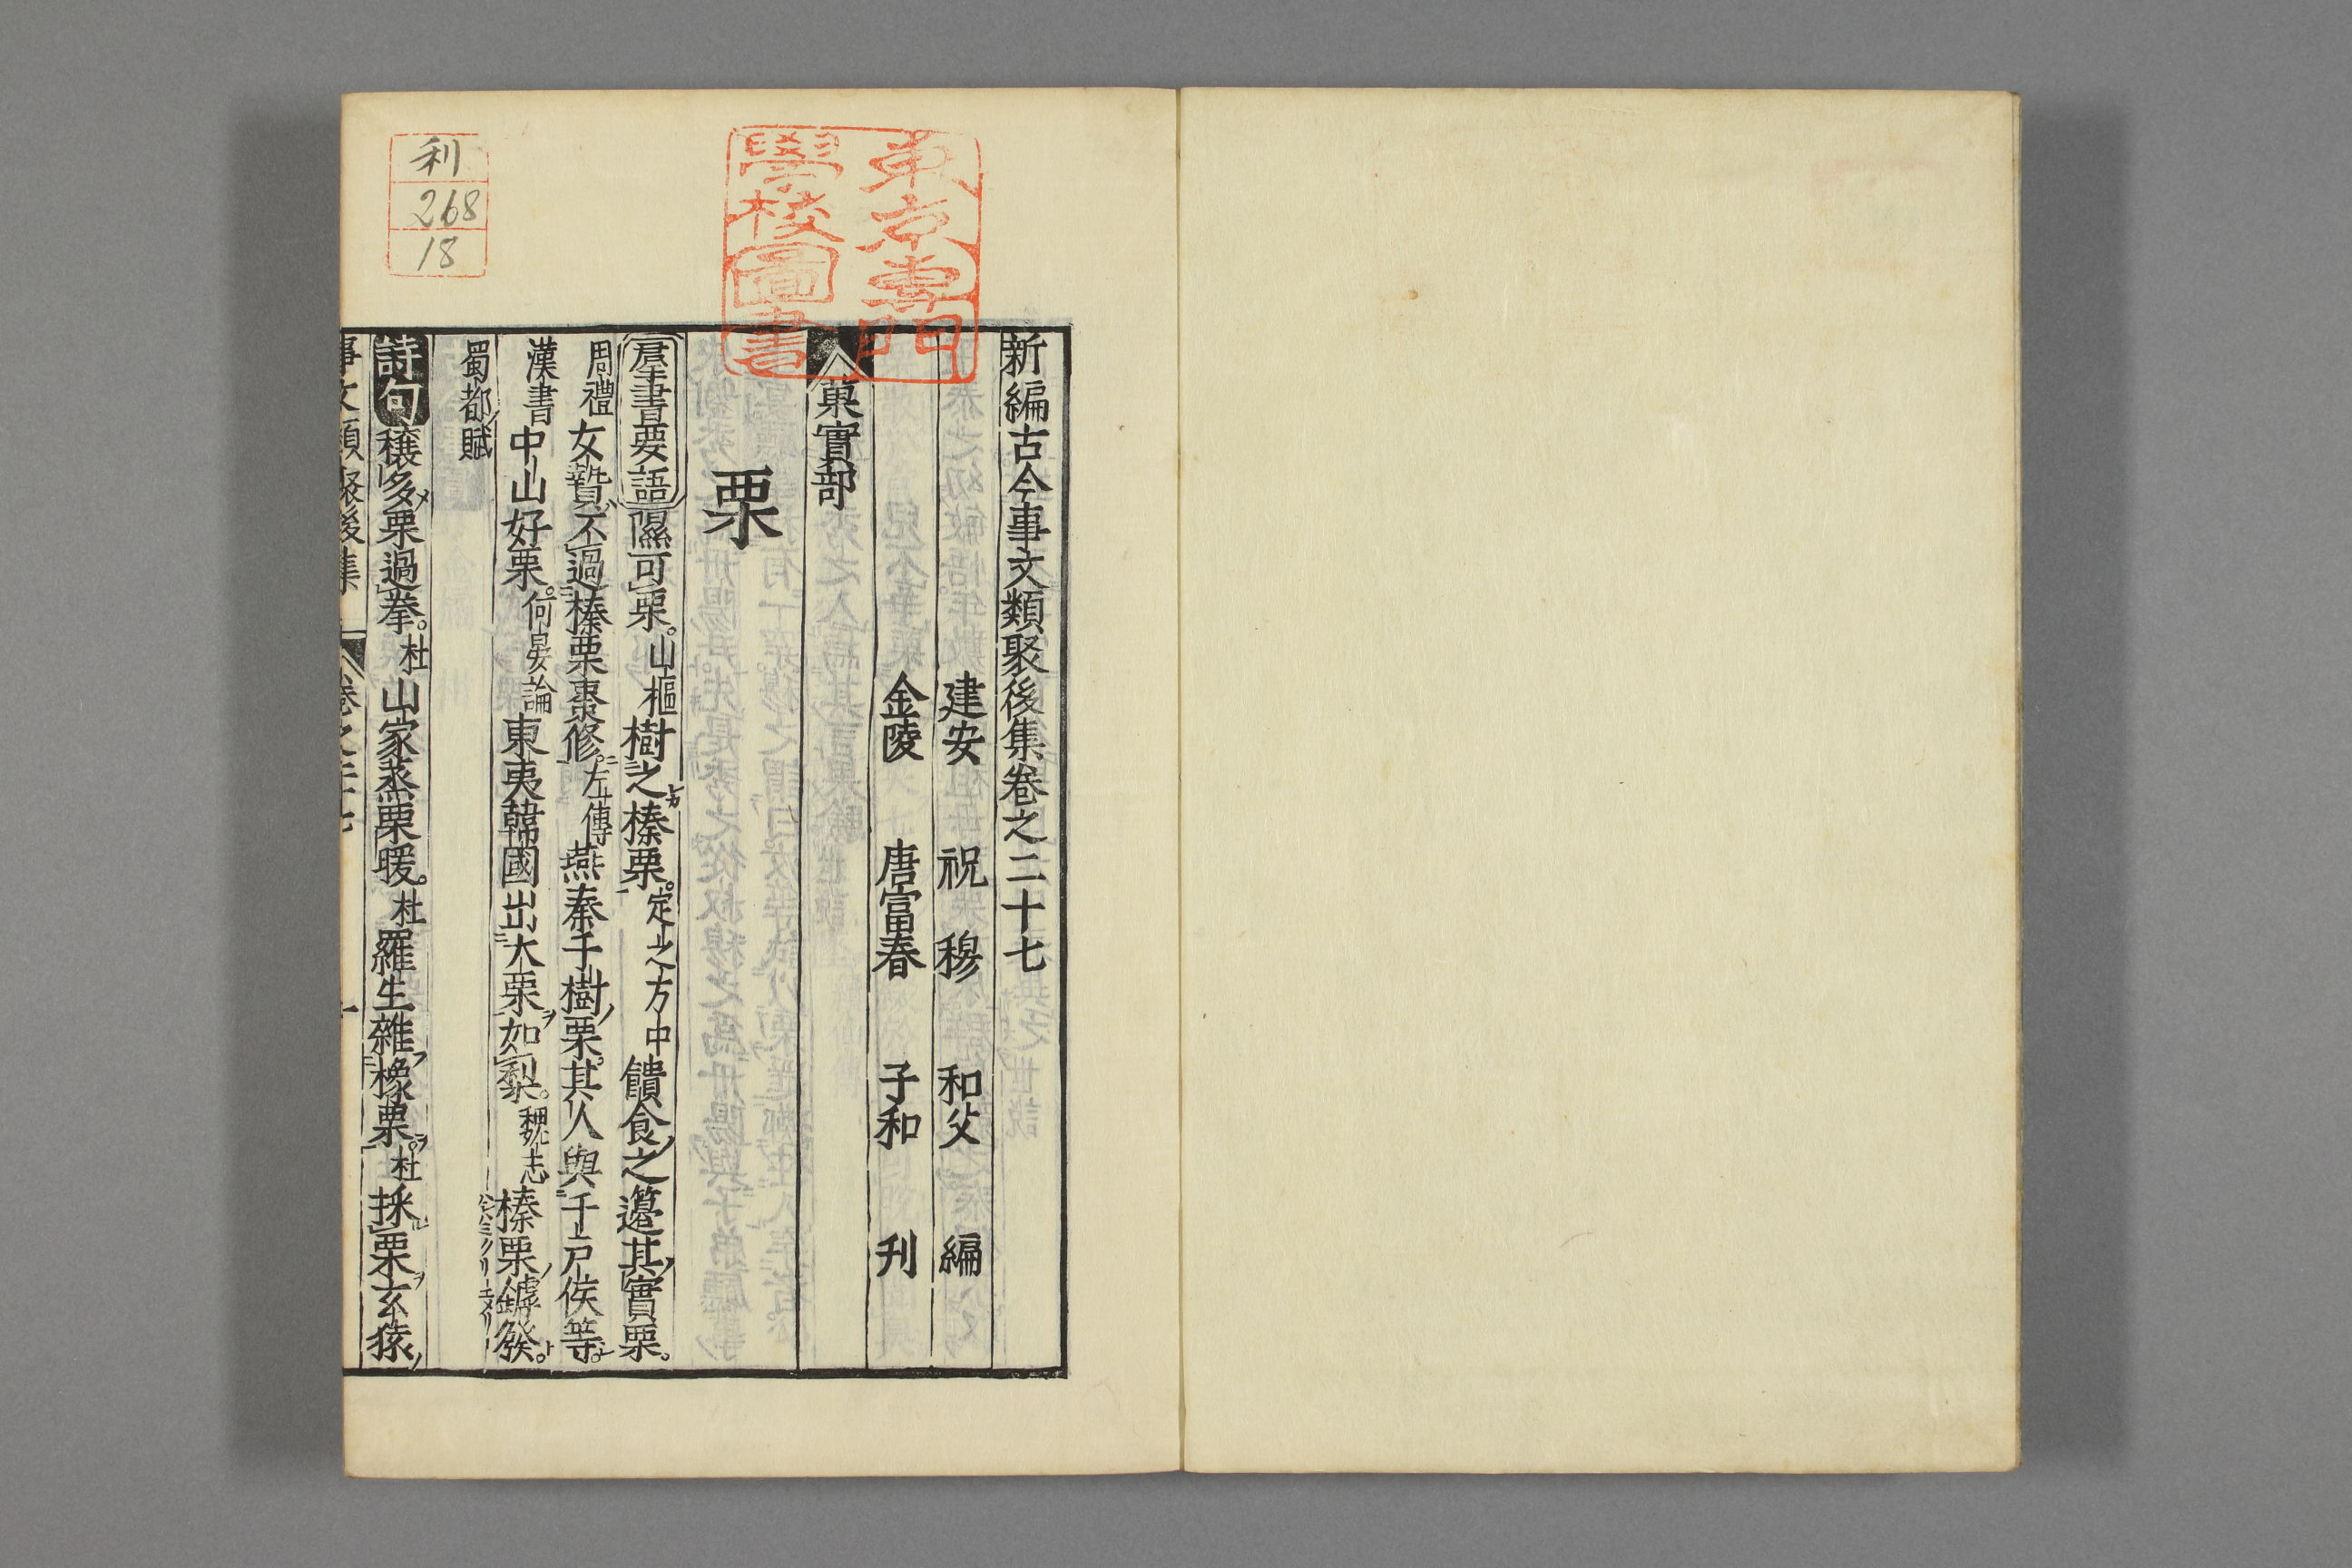 新編古今事文類聚後集卷之二十七
建安 祝穆 和父 編
金陵 唐富春 子和 刋
菓實部
栗
羣書要語 隰可栗。山樞 樹之榛栗。定之方中 饋食之籩其實栗。
周禮 女贄不過榛栗棗修。左傳 燕秦千樹栗。其人與千戸侯等。
漢書 中山好栗。何晏論 東夷韓國出大栗如梨。魏志 榛栗罅發。
蜀都賦
詩句 穰多栗過拳。杜 山家蒸栗暖。杜 羅生雜橡栗。杜 採栗玄猿
事文類聚後集 卷之二十七 一
東京專門
學校圖書
利
268
18